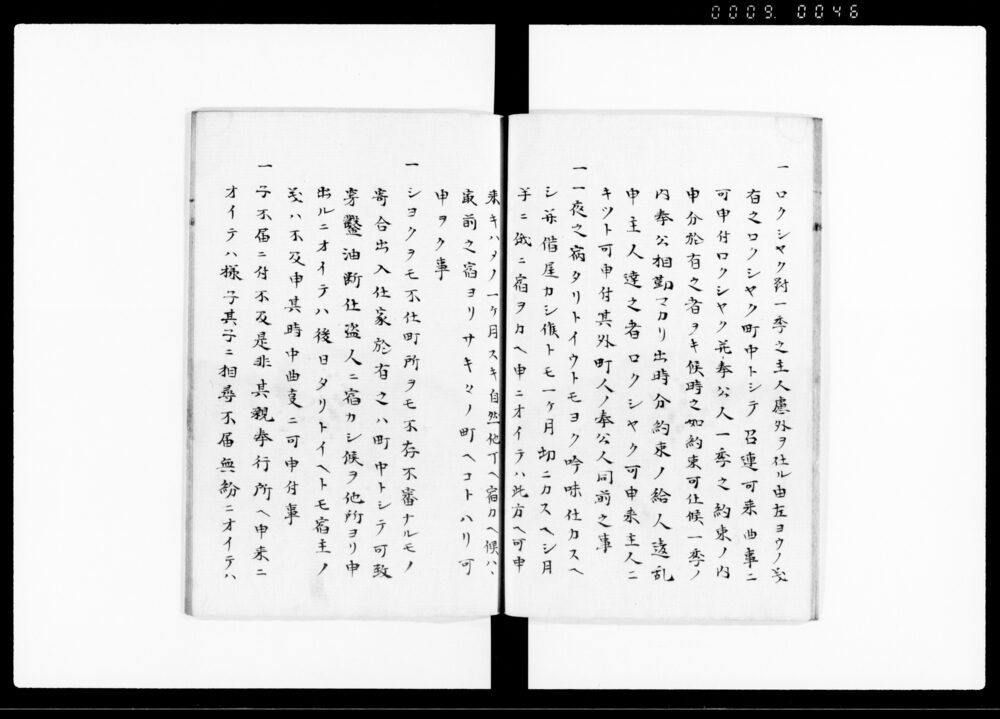 0009. 0046
一 ロクシヤク対一季之主人慮外ヲ仕ル由左ヨウノ義
有之ロクシヤク町中トシテ召連可来曲事ニ
可申付ロクシヤク并奉公人一季之約束ノ内
申分於有之者ヲキ候時之如約束可仕候一季ノ
内奉公相勤マカリ出時分約束ノ給人違乱
申主人達之者ロクシヤク可申来主人ニ
キツト可申付其外町人ノ奉公人同前之事
一 一夜之宿タリトイウトモヨク吟味仕カスヘ
シ并借屋カシ候トモ一ケ月切ニカスヘシ月
半ニ俄ニ宿ヲカヘ申ニオイテハ此方ヘ可申
来キハメノ一ケ月スキ自然他丁ヘ宿カヘ候ハヽ
最前之宿ヨリサキ々ノ町ヘコトハリ可
申ヲク事
一 シヨクヲモ不仕町所ヲモ不存不審ナルモノ
寄合出入仕家於有之ハ町中トシテ可致
穿鑿油断仕盗人ニ宿カシ候ヲ他所ヨリ申
出ルニオイテハ後日タリトイヘトモ宿主ノ
義ハ不及申其時中曲事ニ可申付事
一 子不届ニ付不及是非其親奉行所ヘ申来ニ
オイテハ様子其子ニ相尋不届無紛ニオイテハ